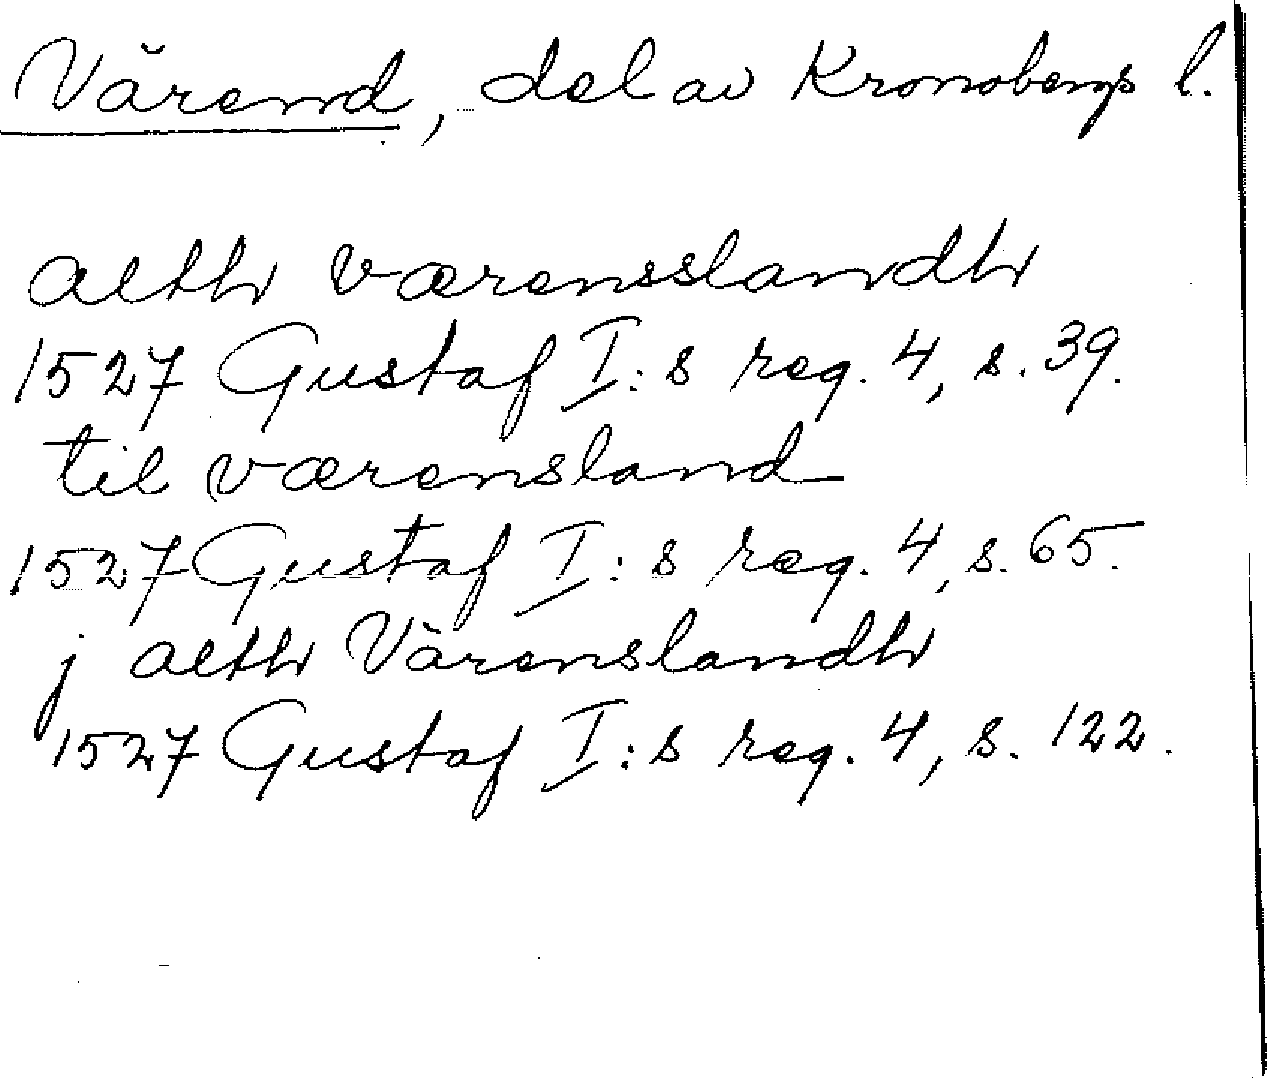 Värend, del av Kronobergs l.
alth værensslandh
1527 Gustaf I:s reg. 4, s. 39.
til værensland
1527 Gustaf I:s reg. 4, s. 65.
j alth Värenslandh
1527 Gustaf I:s reg. 4, s. 122.